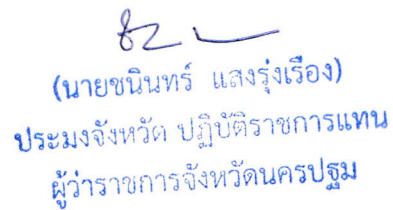 (นายชนินทร์ แสงรุ่งเรือง)
ประมงจังหวัด ปฏิบัติราชการแทน
ผู้ว่าราชการจังหวัดนครปฐม